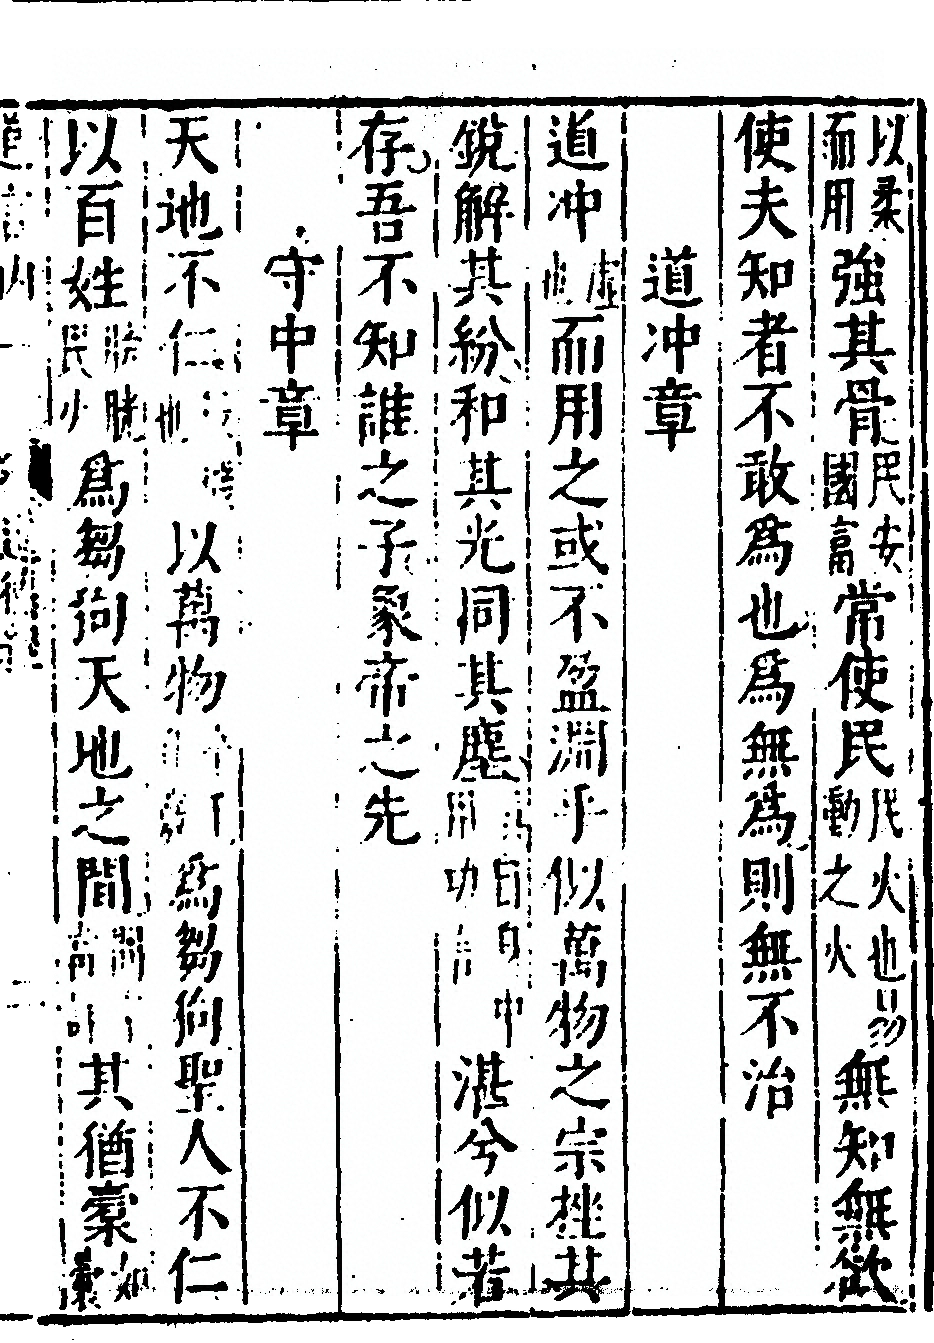 以柔而用強其骨民安國富常使民民火也易動之火無知無欲
使夫知者不敢為也為無為則無不治
道冲章
道冲虛也而用之或不盈淵乎似萬物之宗挫其
銳解其紛和其光同其塵湛兮似若
存吾不知誰之子象帝之先
守中章
天地不仁以萬物為芻狗聖人不仁
以百姓為芻狗天地之間其猶橐